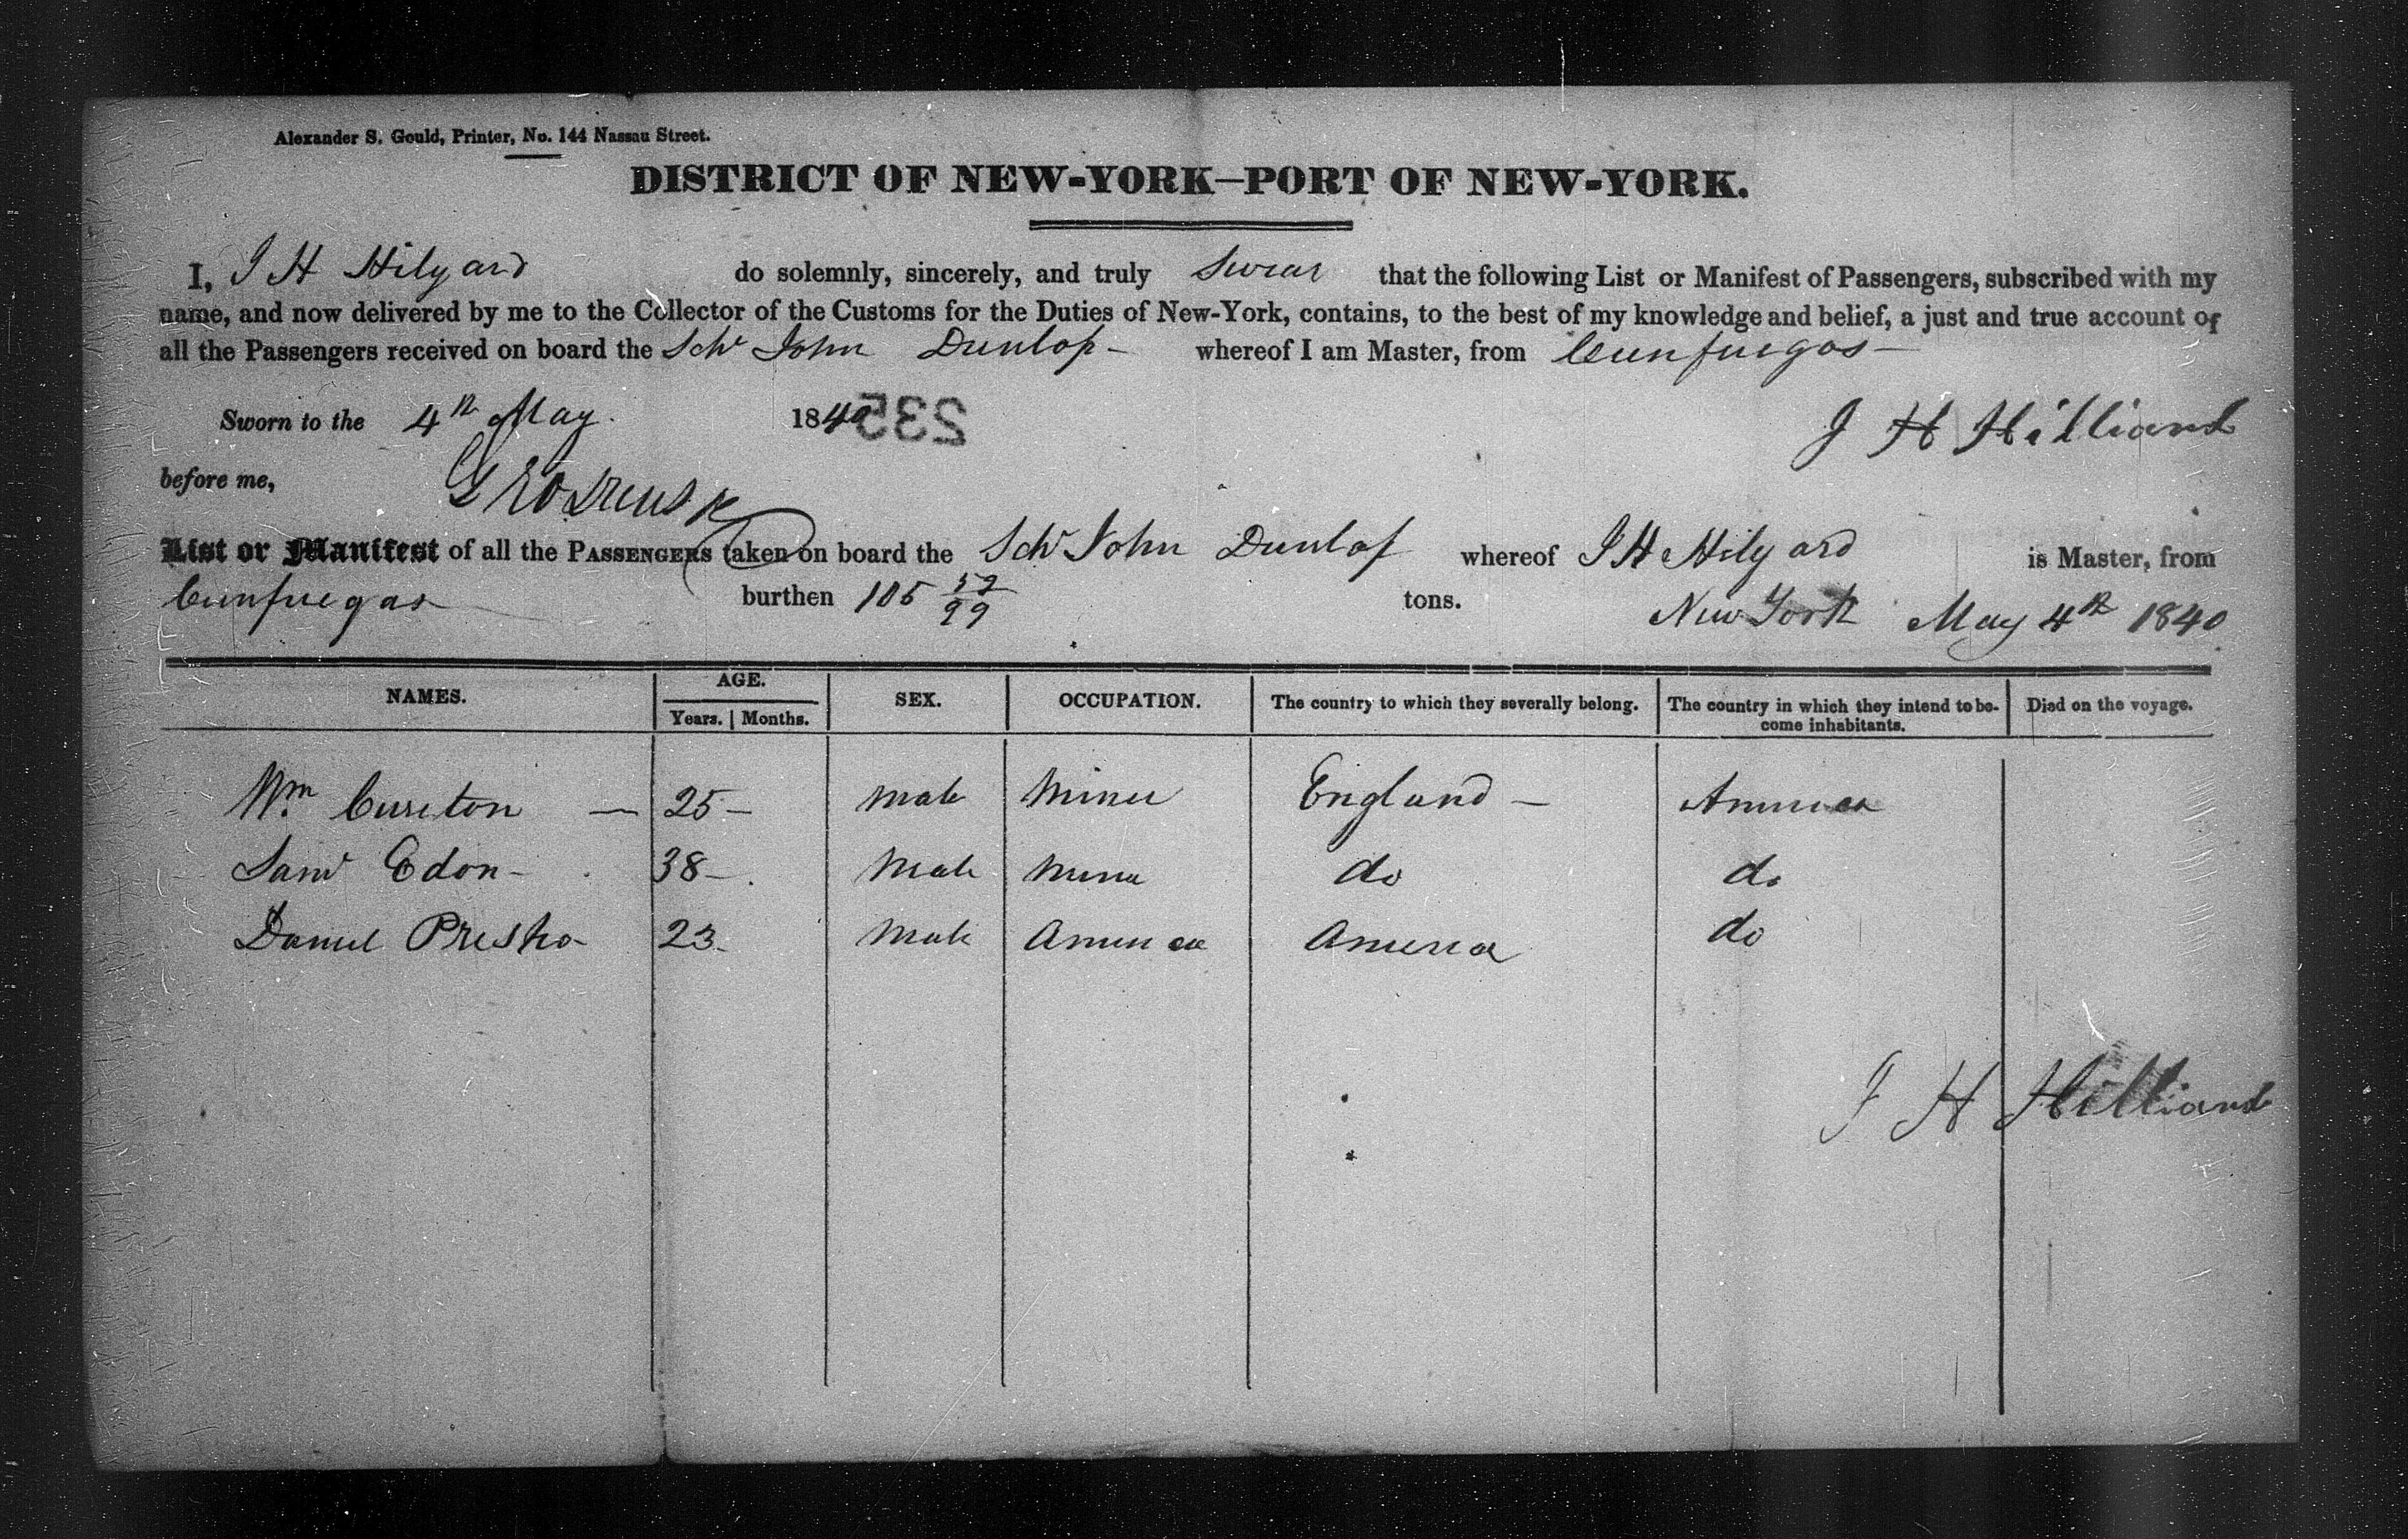 Alexander S. Gould, Printer, No. 144 Nassau Street.
DISTRICT OF NEW-YORK—PORT OF NEW-YORK.
I, J H Hilyard do solemnly, sincerely, and truly Swear that the following List or Manifest of Passengers, subscribed with my
name, and now delivered by me to the Collector of the Customs for the Duties of New-York, contains, to the best of my knowledge and belief, a just and true account of
all the Passengers received on board the Schr John Dunlop - whereof I am Master, from Cunfuegos -
Sworn to the 4th May. 1840 235
J H Hilliard
before me,
List or Manifest of all the PASSENGERS taken on board the Schr John Dunlop whereof J H Hilyard is Master, from
Cunfuegas burthen 105 tons.
New York May 4th 1840
NAMES. AGE. SEX. OCCUPATION. The country to which they severally belong. The country in which they intend to be- Died on the voyage.
Years. Months. come inhabitants.
Wm. Cureton — 25 - Male Miner England - America
Saml Edon - 38 - Male Miner do do
Daniel Presho - 23 - Male America America do
J H Hilliard